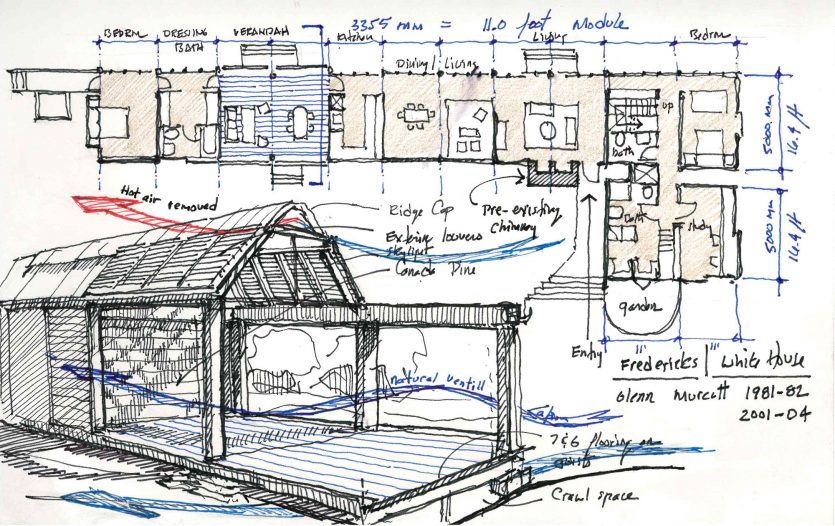 3355 mm = 11.0 foot Module
BEDRM DRESSING VERANDAH Kitchen Living Bedrm
BATH
Dining/Living
up
bath
5000 mm
16.4 ft
Hot air removed
Ridge Cap
Pre-existing
chimney
Bath
study
5000 mm
16.4 ft
Exterior louvers
skylight
Canada Pine
garden
Entry
11' 11'
Fredericks / White House
Glenn Murcutt 1981-82
2001-04
Natural Ventill
T & G flooring on
joists
Crawl space